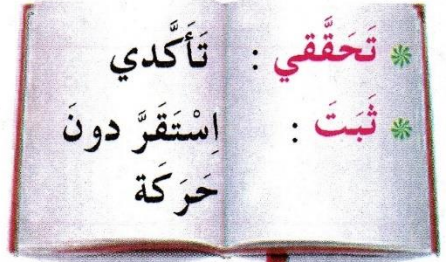 تَحَقَّقي : تَأَكَّدي
ثَبَتَ : اِسْتَقَرَّ دونَ
حَرَكَة